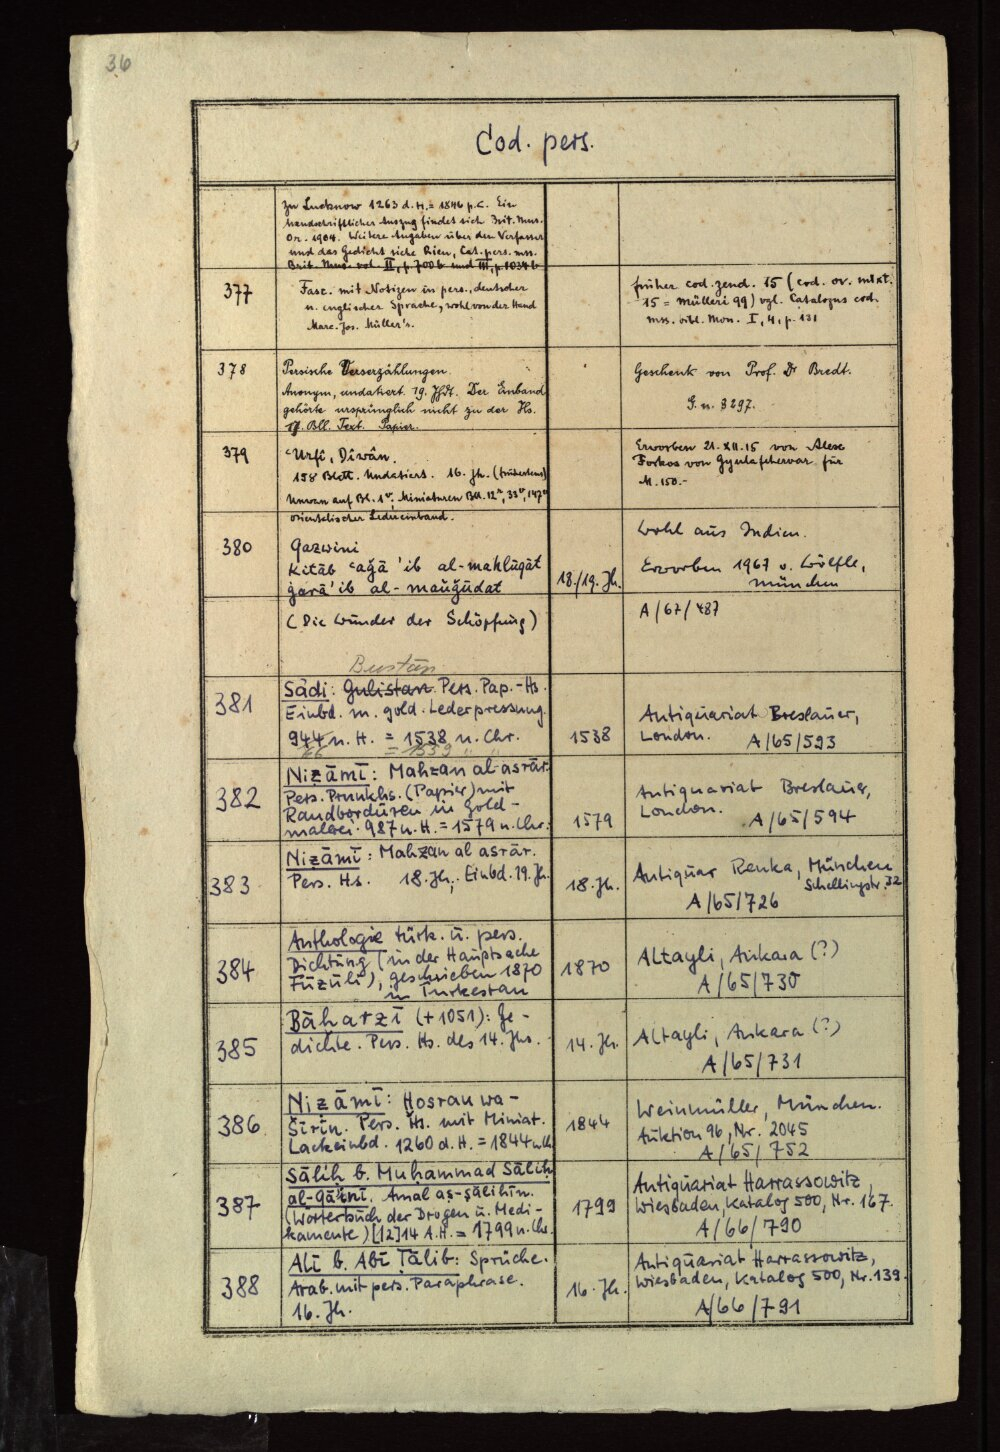 36
Cod. pers.
zu Lucknow 1263 d. H. = 1846 p. C. Ein
handschriftlicher Auszug findet sich Brit. Mus.
Or. 1904. Weitere Angaben über den Verfasser
und das Gedicht siehe Rieu, Cat. pers. mss.
Brit. Mus. vol. II, p. 700b und III, p. 1034b
377
Fasc. mit Notizen in pers., deutscher
u. englischer Sprache, wohl von der Hand
Marc. Jos. Müller's.
früher cod. zend. 15 (cod. or. mixt.
15 = Mülleri 99) vgl. Catalogus cod.
mss. bibl. Mon. I, 4, p. 131
378
Persische Verserzählungen.
Anonym, undatiert. 19. Jhdt. Der Einband
gehörte ursprünglich nicht zu der Hs.
Bll. Text. Papier.
Geschenk von Prof. Dr Bredt.
G. n. 3297.
379
ʿUrfī, Dīwān.
158 Blatt. Undatiert. 16. Jh. (frühestens)
Unwan auf Bl. 1v, Miniaturen Bll. 12r, 33v, 147v
orientalischer Ledereinband.
Erworben 21. XII. 15 von
von Gyulafehervar für
M. 150.-
380
Qazwini
Kitāb ʿaǧāʾib al-mahlūqāt
ġarāʾib al-mauǧūdat
(Die Wunder der Schöpfung)
18./19. Jh.
Wohl aus Indien.
Erworben 1967 v. Wölfle,
München
A/67/487
381
Bustān
Sādi: Gulistan. Pers. Pap.-Hs.
Einbd. m. gold. Lederpressung.
944 n. H. = 1538 n. Chr.
66 = 1559 " "
1538
Antiquariat Breslauer,
London. A/65/593
382
Niẓāmī: Mahzan al-asrār.
Pers. Prunkhs. (Papier) mit
Randbordüren in Gold-
malerei. 987 n. H. = 1579 n. Chr.
1579
Antiquariat Breslauer,
London. A/65/594
383
Niẓāmī: Mahzan al asrār.
Pers. Hs. 18. Jh., Einbd. 19. Jh.
18. Jh.
Antiquar Renka, München
Schellingstr. 32
A/65/726
384
Anthologie türk. u. pers.
Dichtung (in der Hauptsache
Fuzūlī), geschrieben 1870
in Turkestan
1870
Altayli, Ankara (?)
A/65/730
385
Bāharzī (+1051): Ge-
dichte. Pers. Hs. des 14. Jhs.
14. Jh.
Altayli, Ankara (?)
A/65/731
386
Niẓāmī: Hosrau wa-
Šīrīn. Pers. Hs. mit Miniat.
Lackeinbd. 1260 d. H. = 1844 n. Ch.
1844
Weinmüller, München.
Auktion 96, Nr. 2045
A/65/752
387
Sālih b. Muhammad Sālih
al-Qāʾinī. Amal aṣ-ṣālihīn.
(Wörterbuch der Drogen u. Medi-
kamente) [12]14 A.H. = 1799 n. Chr.
1799
Antiquariat Harrassowitz,
Wiesbaden, Katalog 500, Nr. 167.
A/66/790
388
Alī b. Abī Ṭālib: Sprüche.
Arab. mit pers. Paraphrase.
16. Jh.
16. Jh.
Antiquariat Harrassowitz,
Wiesbaden, Katalog 500, Nr. 139.
A/66/791